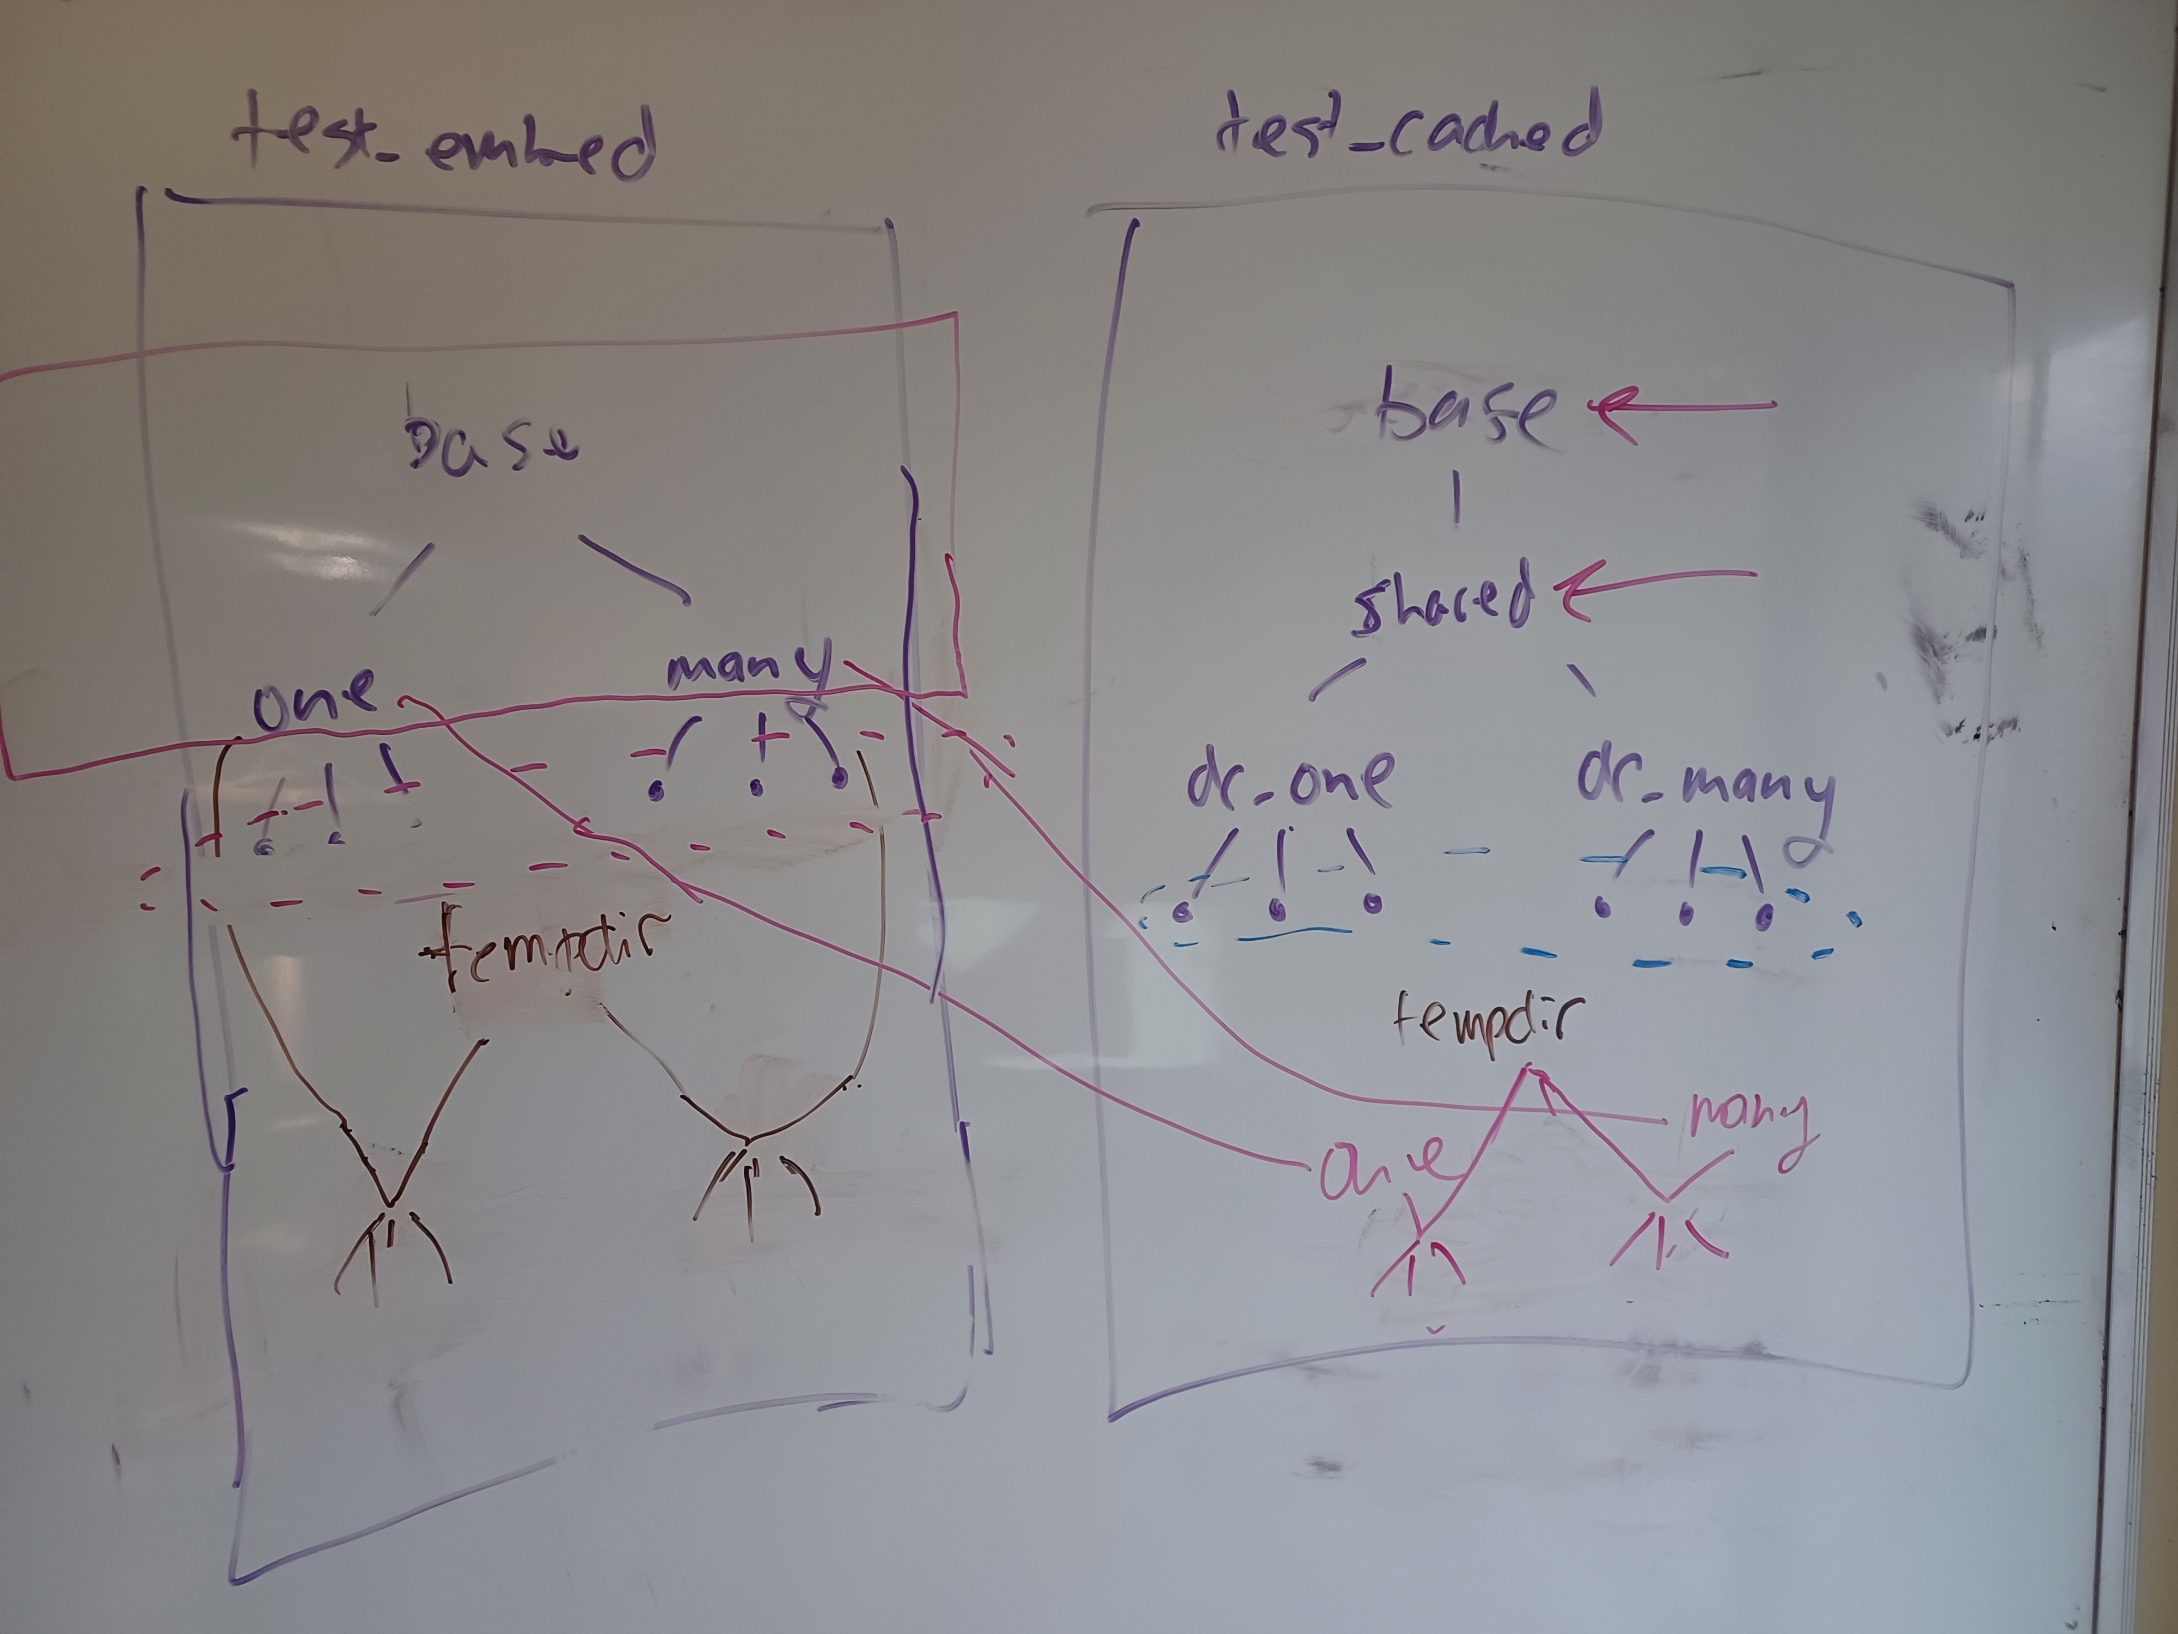 test_embed
base
one
many
tempdir
test_cached
base
shared
dc_one
dc_many
tempdir
one
many